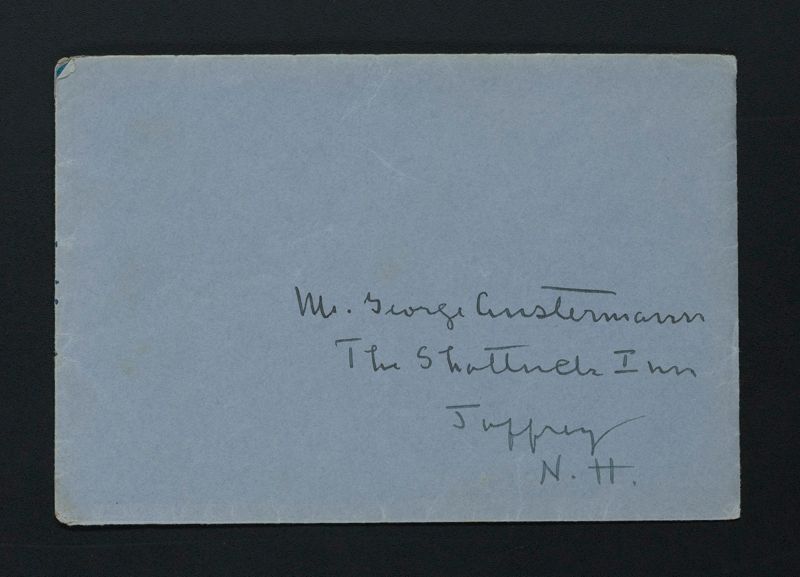 Mr. George Austermann
The Shattuck Inn
Jaffrey
N. H.